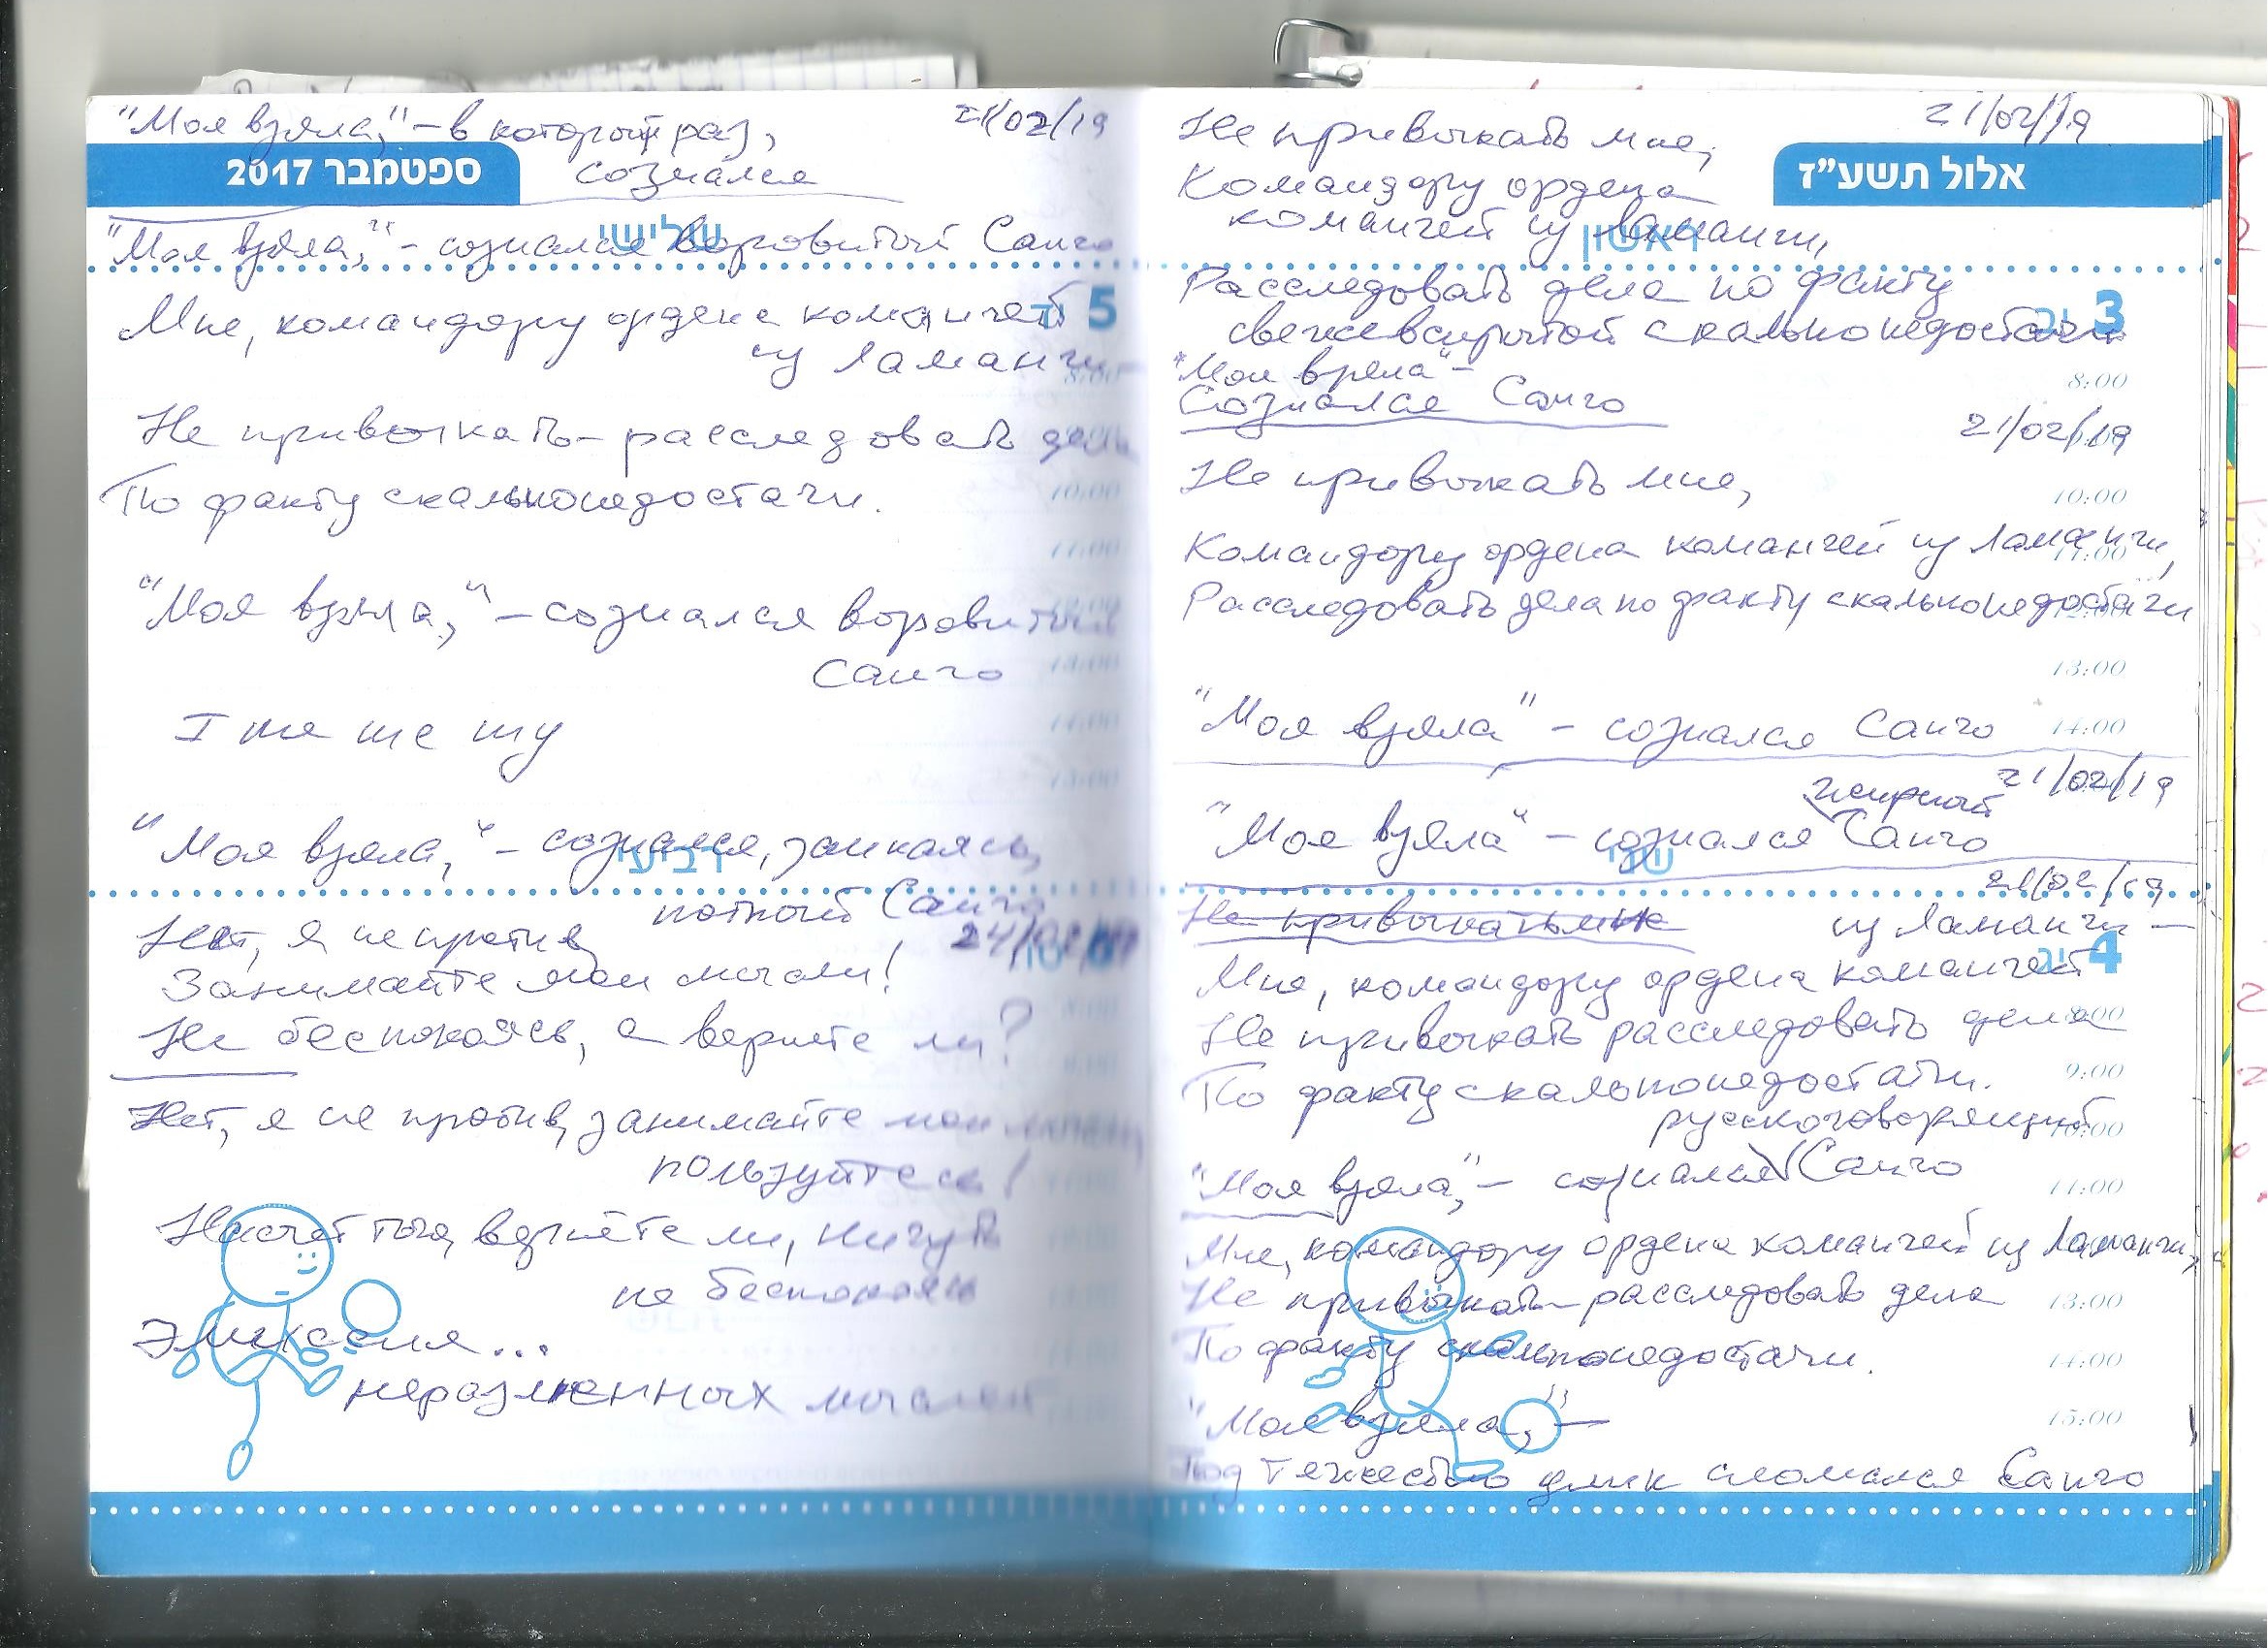 "Моя взяла," – в который раз,
21/02/19
ספטמבר 2017
сознался
שלישי
"Моя взяла," – сознался вороватый Санчо
5
Мне, командору ордена команчей
из Ламанчи –
8:00
Не привыкать – расследовать дела
По факту скальпонедостачи.
10:00
11:00
"Моя взяла," – сознался вороватый
12:00
Санчо
13:00
I те ше ту
14:00
15:00
"Моя взяла," – сознался, заикаясь,
רביעי
потный Санчо
Нет, я не против
24/02/19
6 טו
Занимайте мои мысли!
Не беспокоясь, а вернете ли?
Нет, я не против, занимайте мои мысли,
пользуйтесь!
Насчет того, вернёте ли, ничуть
не беспокоясь
שבת
Эмиссия...
неразменных мыслей
21/02/19
Не привыкать мне,
אלול תשע"ז
Командору ордена
команчей из Ламанчи,
ראשון
Расследовать дела по факту
3 יב
свежевскрытой скальпонедостачи
"Моя взяла" –
8:00
Сознался Санчо
21/02/19
Не привыкать мне,
10:00
Командору ордена команчей из Ламанчи,
11:00
Расследовать дела по факту скальпонедостачи
12:00
13:00
"Моя взяла" – сознался Санчо
14:00
21/02/19
жирный
"Моя взяла" – сознался Санчо
שני
21/02/19
Не привыкать мне
из Ламанчи –
4 יג
Мне, командору ордена команчей
Не привыкать расследовать дела
8:00
По факту скальпонедостачи.
9:00
русскоговорящий
10:00
"Моя взяла," – сознался Санчо
11:00
Мне, командору ордена команчей из Ламанчи,
Не привыкать – расследовать дела
13:00
По факту скальпонедостачи.
14:00
"Моя взяла," –
15:00
Под тяжестью улик сломался Санчо